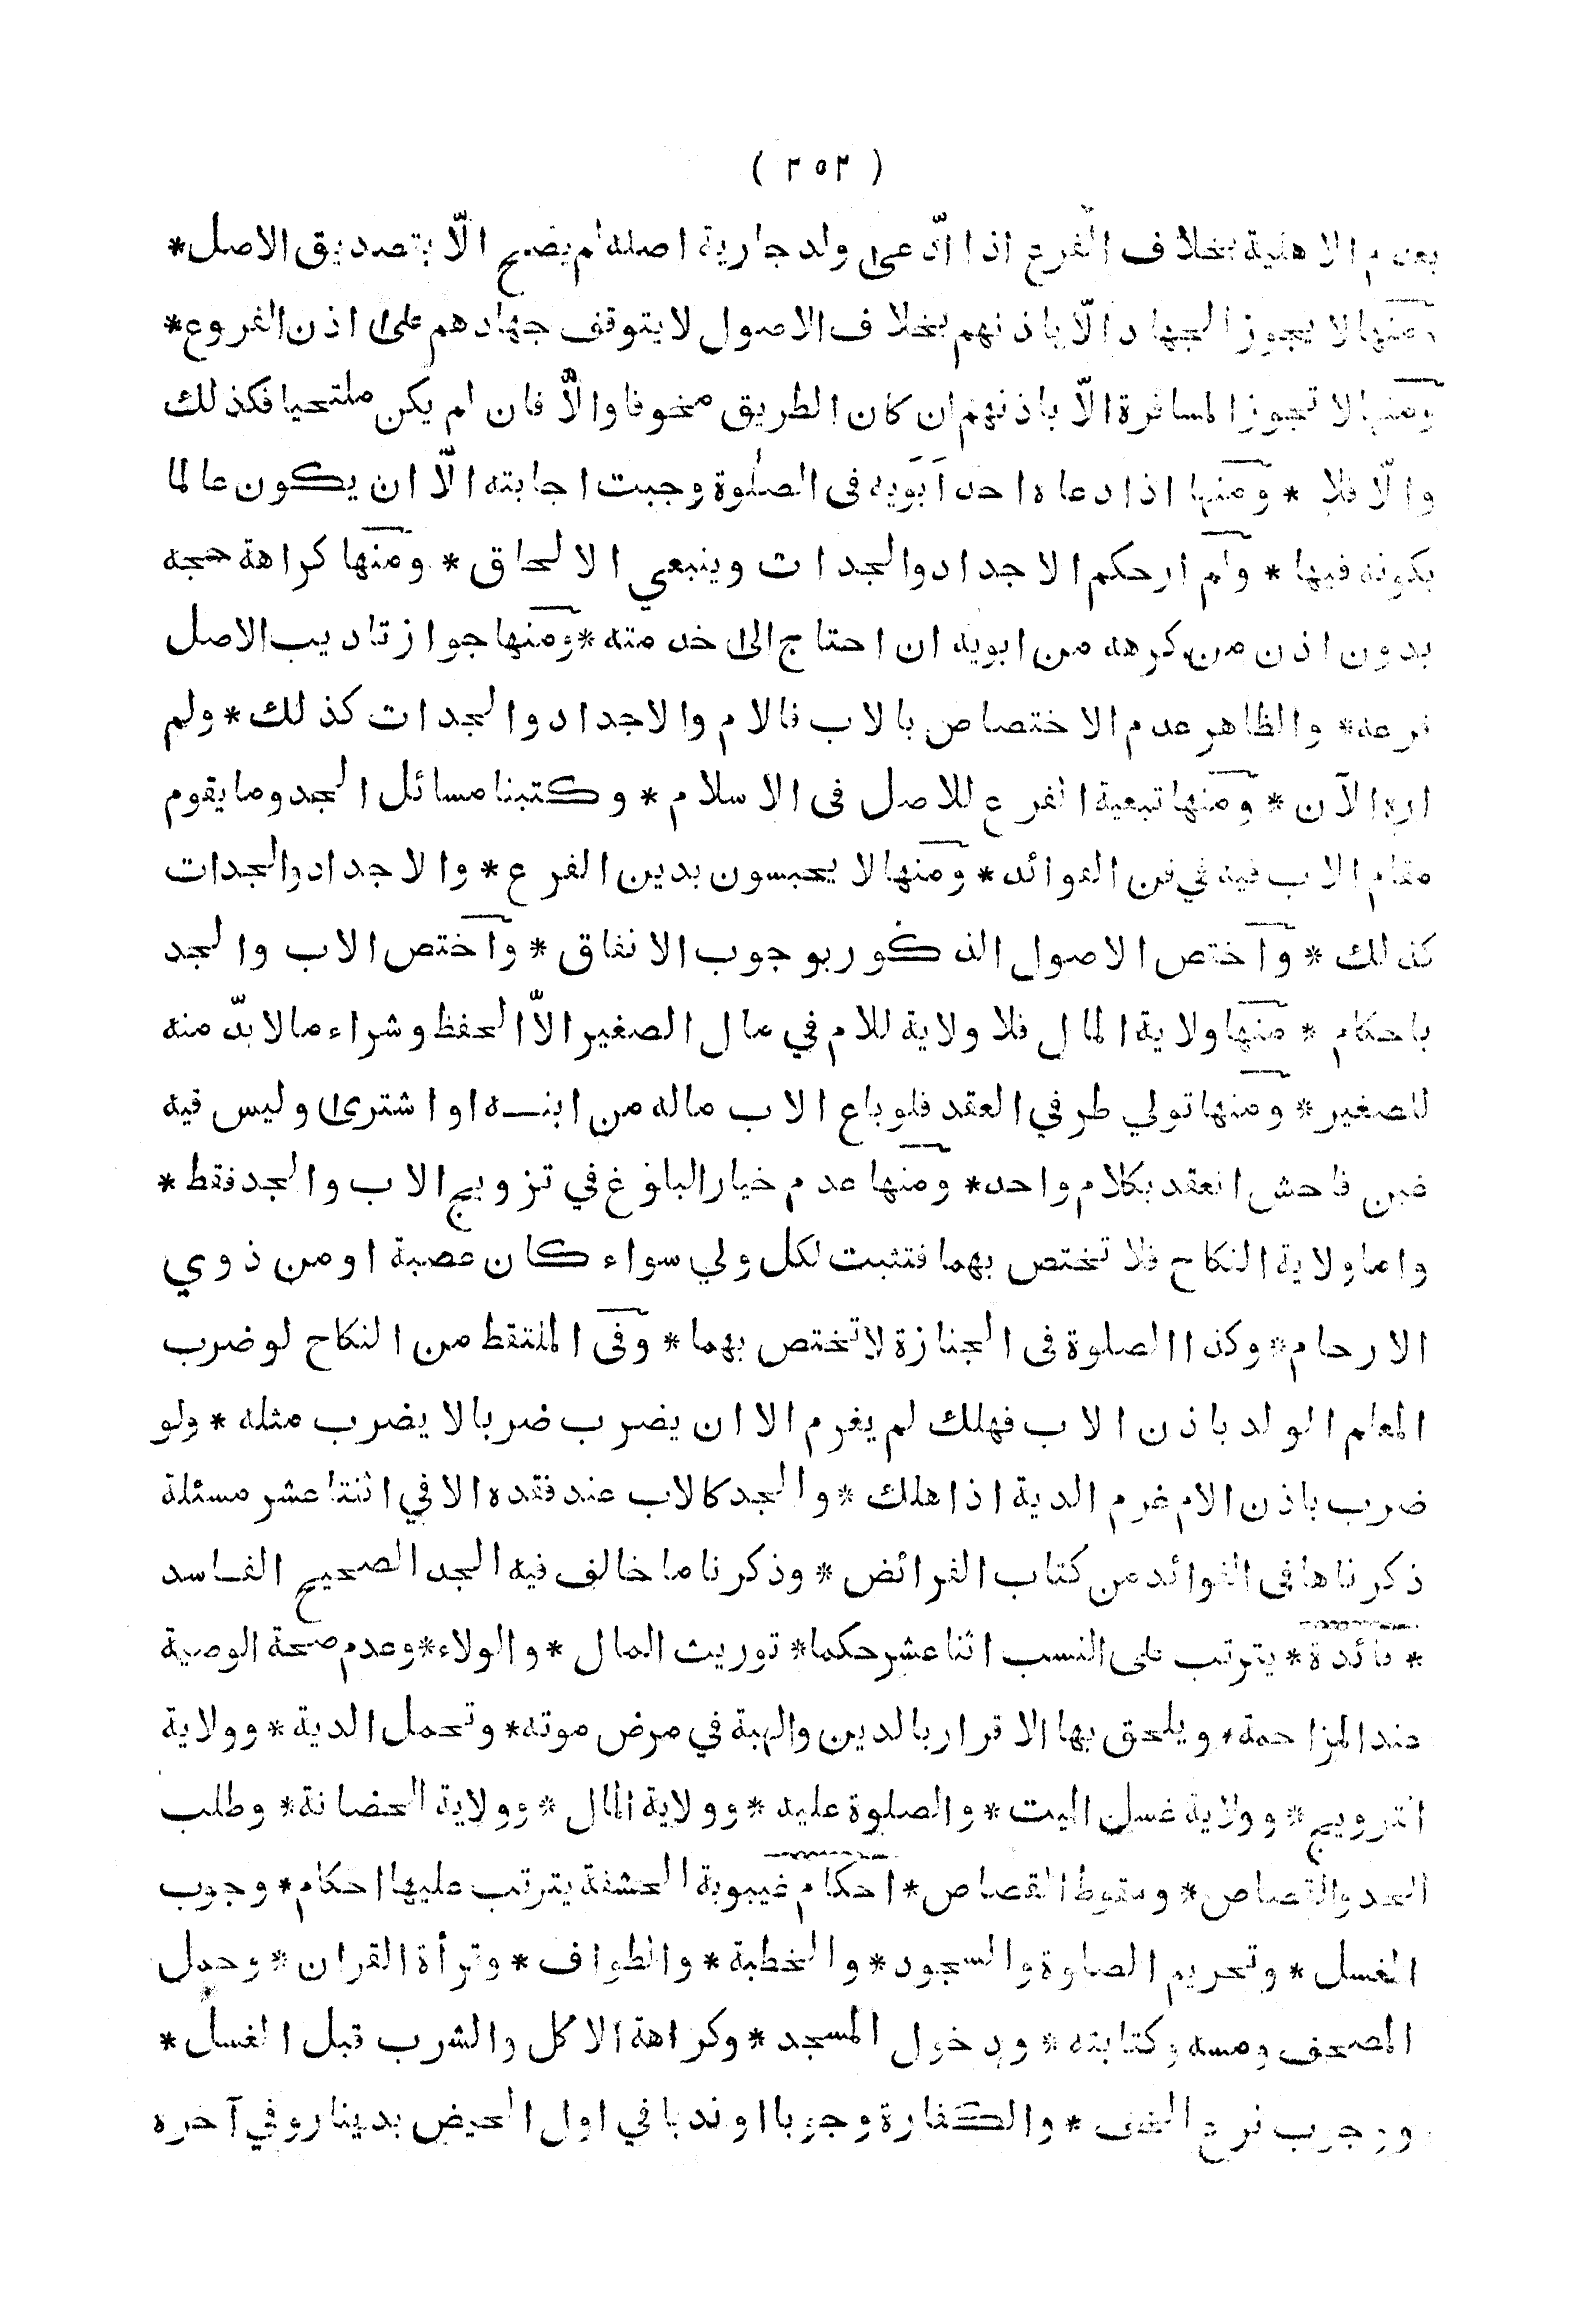 ( ٣٥٢ )
بعدم الاهلية بخلاف الفرع اذا ادّعى ولد جارية اصله لم يصح الّا بتصديق الاصل*
ومنها لا يجوز الجهاد الّا باذنهم بخلاف الاصول لا يتوقف جهادهم على اذن الفروع*
ومنها لا تجوز المسافرة الّا باذنهم ان كان الطريق مخوفا والّا فان لم يكن ملتحيا فكذلك
والّا فلا * ومنها اذا دعاه احد ابويه فى الصلوة وجبت اجابته الّا ان يكون عالما
بكونه فيها * ولم ارحكم الاجداد والجدات وينبغي الالحاق * ومنها كراهة حجه
بدون اذن من كرهه من ابويه ان احتاج الى خدمته * ومنها جواز تاديب الاصل
فرعه * والظاهر عدم الاختصاص بالاب فالام والاجداد والجدات كذلك * ولم
اره الآن * ومنها تبعية الفرع للاصل فى الاسلام * وكتبنا مسائل الجد وما يقوم
مقام الاب فيه في فن الفوائد * ومنها لا يحبسون بدين الفرع * والاجداد والجدات
كذلك * واختص الاصول الذكور بوجوب الانفاق * واختص الاب والجد
باحكام * منها ولاية المال فلا ولاية للام في مال الصغير الّا الحفظ وشراء مالا بدّ منه
للصغير * ومنها تولي طرفي العقد فلو باع الاب ماله من ابنه او اشترى وليس فيه
غبن فاحش انعقد بكلام واحد * ومنها عدم خيار البلوغ في تزويج الاب والجد فقط *
واما ولاية النكاح فلا تختص بهما فتثبت لكل ولي سواء كان عصبة او من ذوي
الارحام * وكذا الصلوة فى الجنازة لا تختص بهما * وفى الملتقط من النكاح لو ضرب
المعلم الولد باذن الاب فهلك لم يغرم الا ان يضرب ضربا لا يضرب مثله * ولو
ضرب باذن الام غرم الدية اذا هلك * والجد كالاب عند فقده الا في اثنتا عشر مسئلة
ذكرناها فى الفوائد من كتاب الفرائض * وذكرنا ما خالف فيه الجد الصحيح الفاسد
* فائدة * يترتب على النسب اثنا عشر حكما * توريث المال * والولاء * وعدم صحة الوصية
عند المزاحمة * ويلحق بها الاقرار بالدين والهبة في مرض موته * وتحمل الدية * وولاية
التزويج * وولاية غسل الميت * والصلوة عليه * وولاية المال * وولاية الحضانة * وطلب
الحد والقصاص * وسقوط القصاص * احكام غيبوبة الحشفة يترتب عليها احكام * وجوب
الغسل * وتحريم الصلوة والسجود * والخطبة * والطواف * وقرأة القران * وحمل
المصحف ومسه وكتابته * ودخول المسجد * وكراهة الاكل والشرب قبل الغسل *
ووجوب نزع الخف * والكفارة وجوبا او ندبا في اول الحيض بدينار وفي آخره